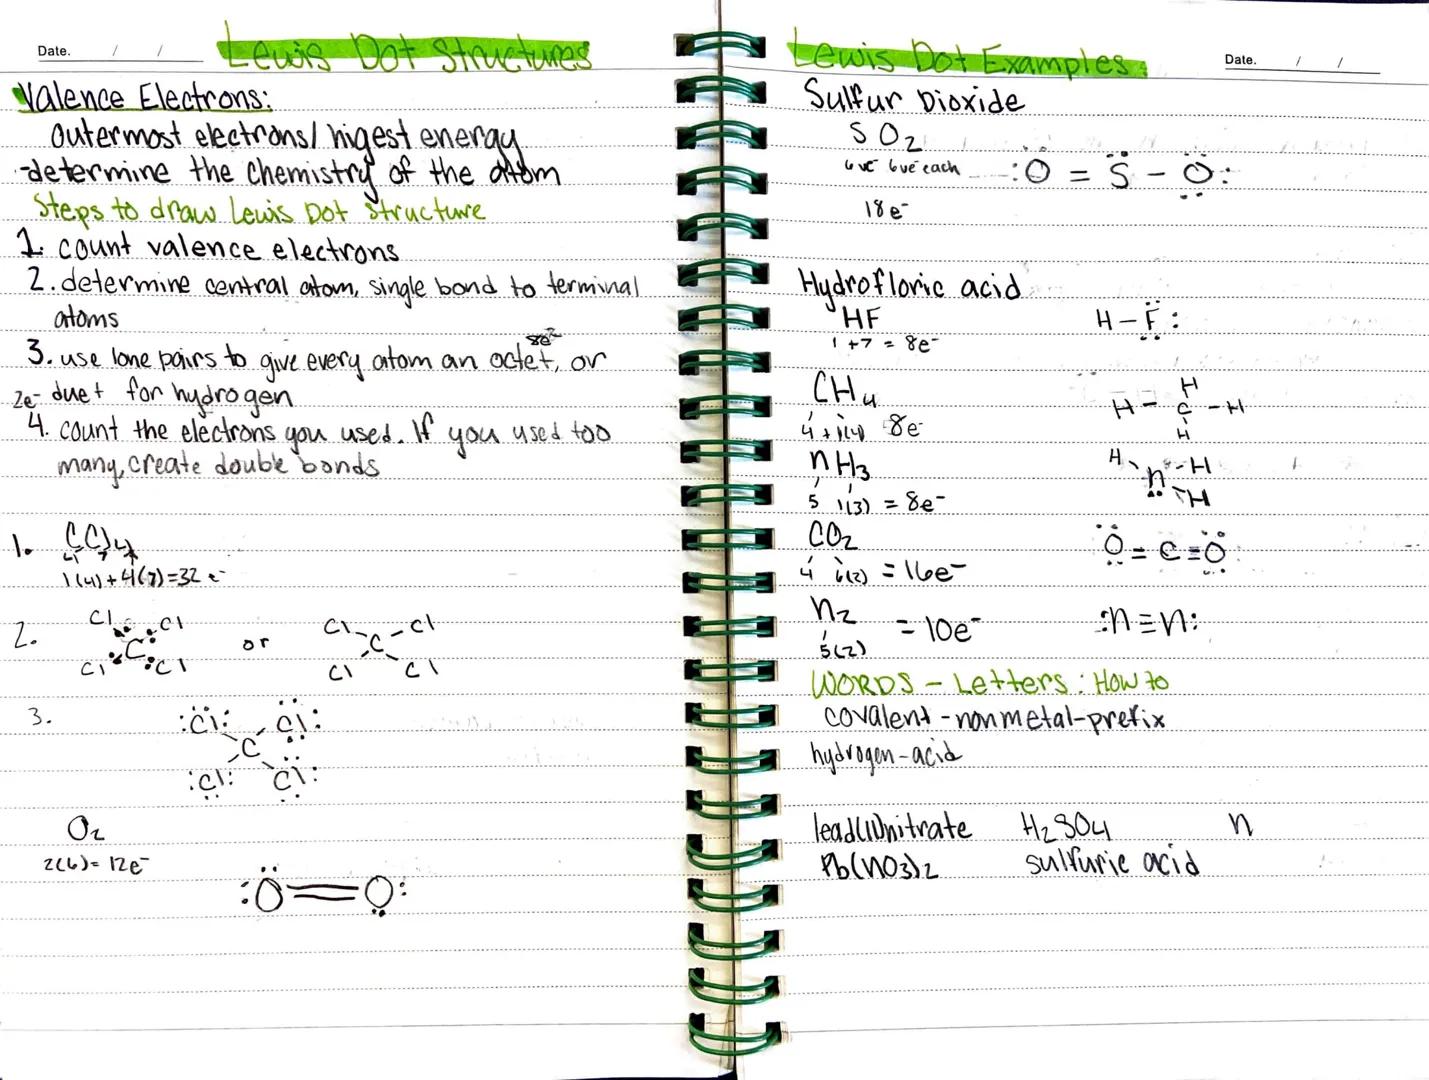 Date. / /
Lewis Dot Structures
Valence Electrons:
outermost electrons/ higest energy
-determine the chemistry of the atom
Steps to draw Lewis Dot Structure
1. count valence electrons
2. determine central atom, single bond to terminal
atoms
8e-
3. use lone pairs to give every atom an octet, or
2e- duet for hydrogen
4. count the electrons you used. If you used too
many, create double bonds
1. CCl4
4 7
1(4)+4(7)=32 e-
2. Cl Cl or Cl Cl
C C
Cl Cl Cl Cl
3. :Cl: Cl:
C
:Cl: Cl:
O2
2(6)= 12e-
:O=O:
Lewis Dot Examples:
Date. / /
Sulfur Dioxide
SO2
6ve 6ve each :O = S - O:
18e-
Hydrofloric acid
HF H-F:
1+7 = 8e-
CH4 H
H - C - H
4 + 1(4) 8e- H
nH3 H n -H
H
5 1(3) = 8e-
CO2 O = C = O
4 6(2) = 16e-
n2 = 10e- :n≡n:
5(2)
WORDS - Letters: How to
covalent - nonmetal-prefix
hydrogen-acid
lead(II)nitrate H2SO4 n
Pb(NO3)2 sulfuric acid